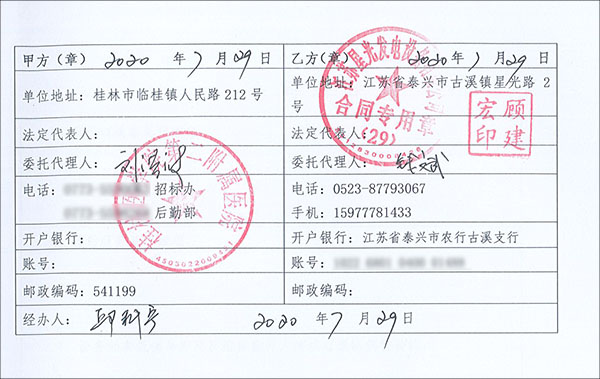 甲方（章） 2020 年 7 月 29 日
单位地址：桂林市临桂镇人民路 212 号
法定代表人：
委托代理人：
电话： 招标办
后勤部
开户银行：
账号：
邮政编码：541199
乙方（章） 2020 年 7 月 29 日
单位地址：江苏省泰兴市古溪镇星光路 2
号
法定代表人：
委托代理人：
电话：0523-87793067
手机：15977781433
开户银行：江苏省泰兴市农行古溪支行
账号：
邮政编码：
经办人： 2020 年 7 月 29 日
合同专用章
(29)
顾建宏印
第二附属医院
4503022000